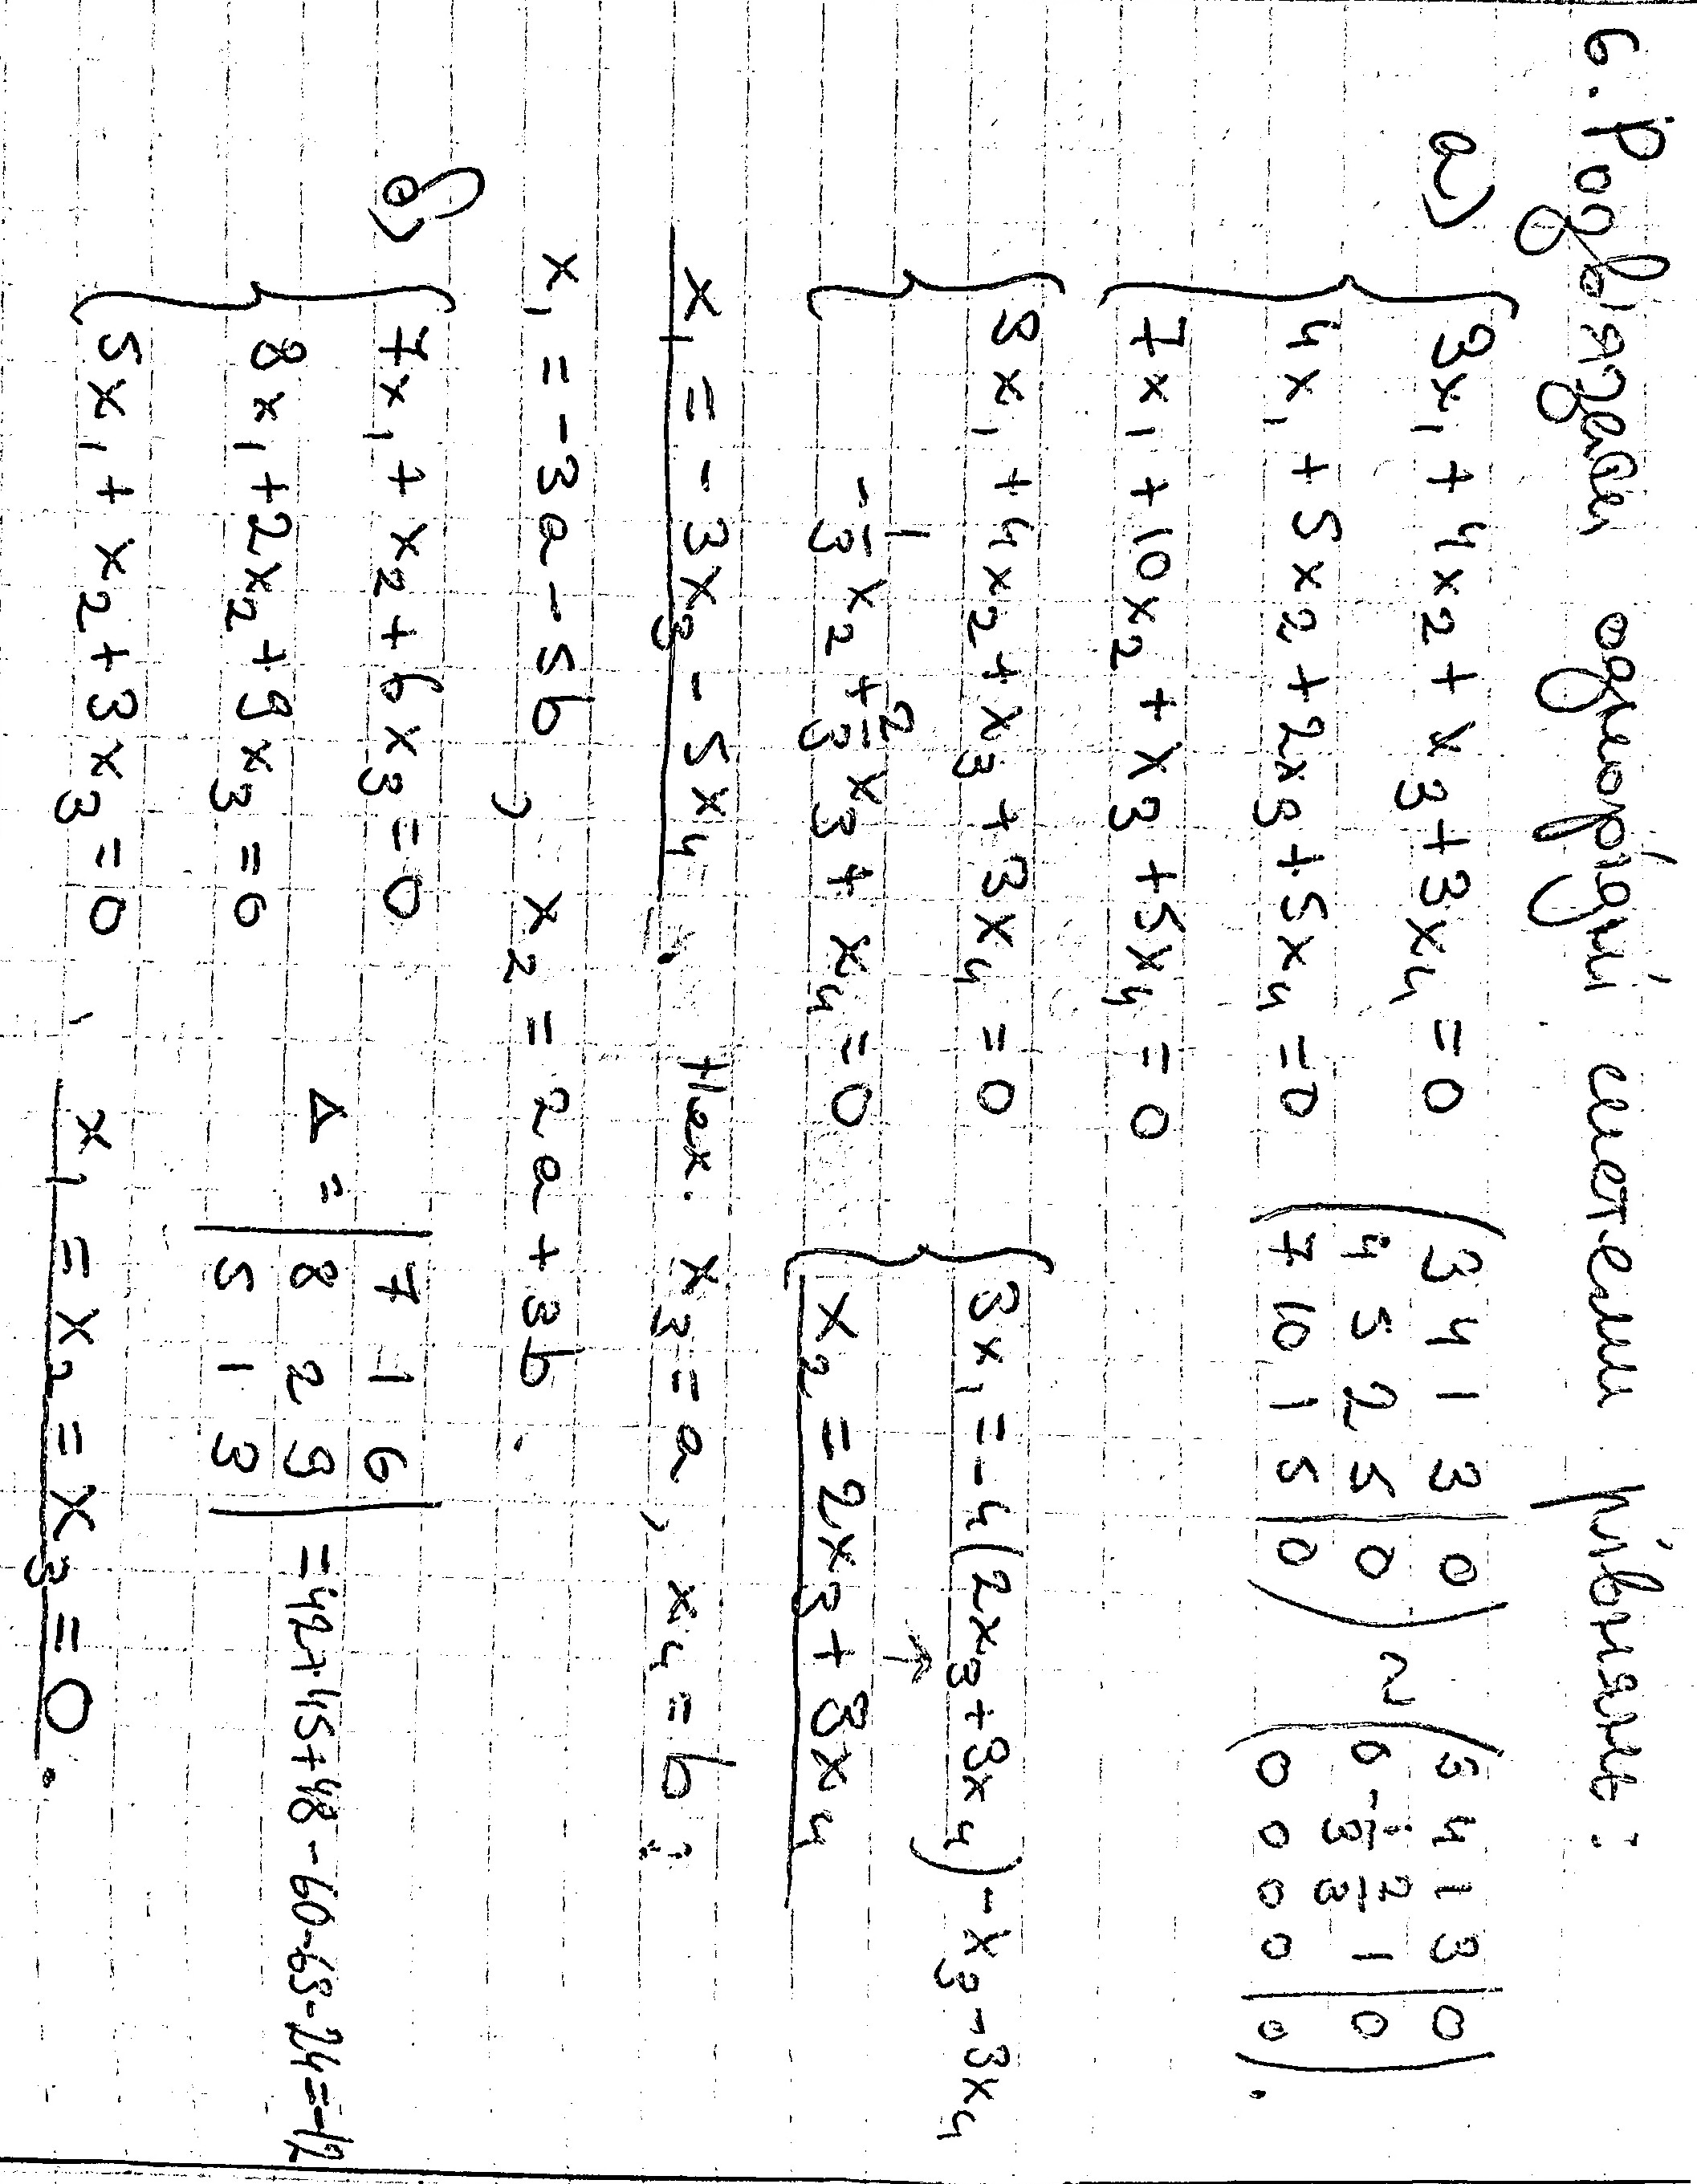 6. Розв'язати однорідні системи рівнянь:
а) { 3x₁ + 4x₂ + x₃ + 3x₄ = 0
4x₁ + 5x₂ + 2x₃ + 5x₄ = 0
7x₁ + 10x₂ + x₃ + 5x₄ = 0
( 3 4 1 3 | 0
4 5 2 5 | 0
7 10 1 5 | 0 ) ~ ( 3 4 1 3 | 0
0 -1/3 2/3 1 | 0
0 0 0 0 | 0 ).
{ 3x₁ + 4x₂ + x₃ + 3x₄ = 0
-1/3 x₂ + 2/3 x₃ + x₄ = 0
{ 3x₁ = -4(2x₃ + 3x₄) - x₃ - 3x₄
↑
x₂ = 2x₃ + 3x₄
x₁ = -3x₃ - 5x₄. Нех. x₃ = a, x₄ = b;
x₁ = -3a - 5b, x₂ = 2a + 3b.
б) { 7x₁ + x₂ + 6x₃ = 0
8x₁ + 2x₂ + 9x₃ = 0
5x₁ + x₂ + 3x₃ = 0,
Δ = | 7 1 6
8 2 9
5 1 3 | = 42+45+48-60-63-24=-12
x₁ = x₂ = x₃ = 0.